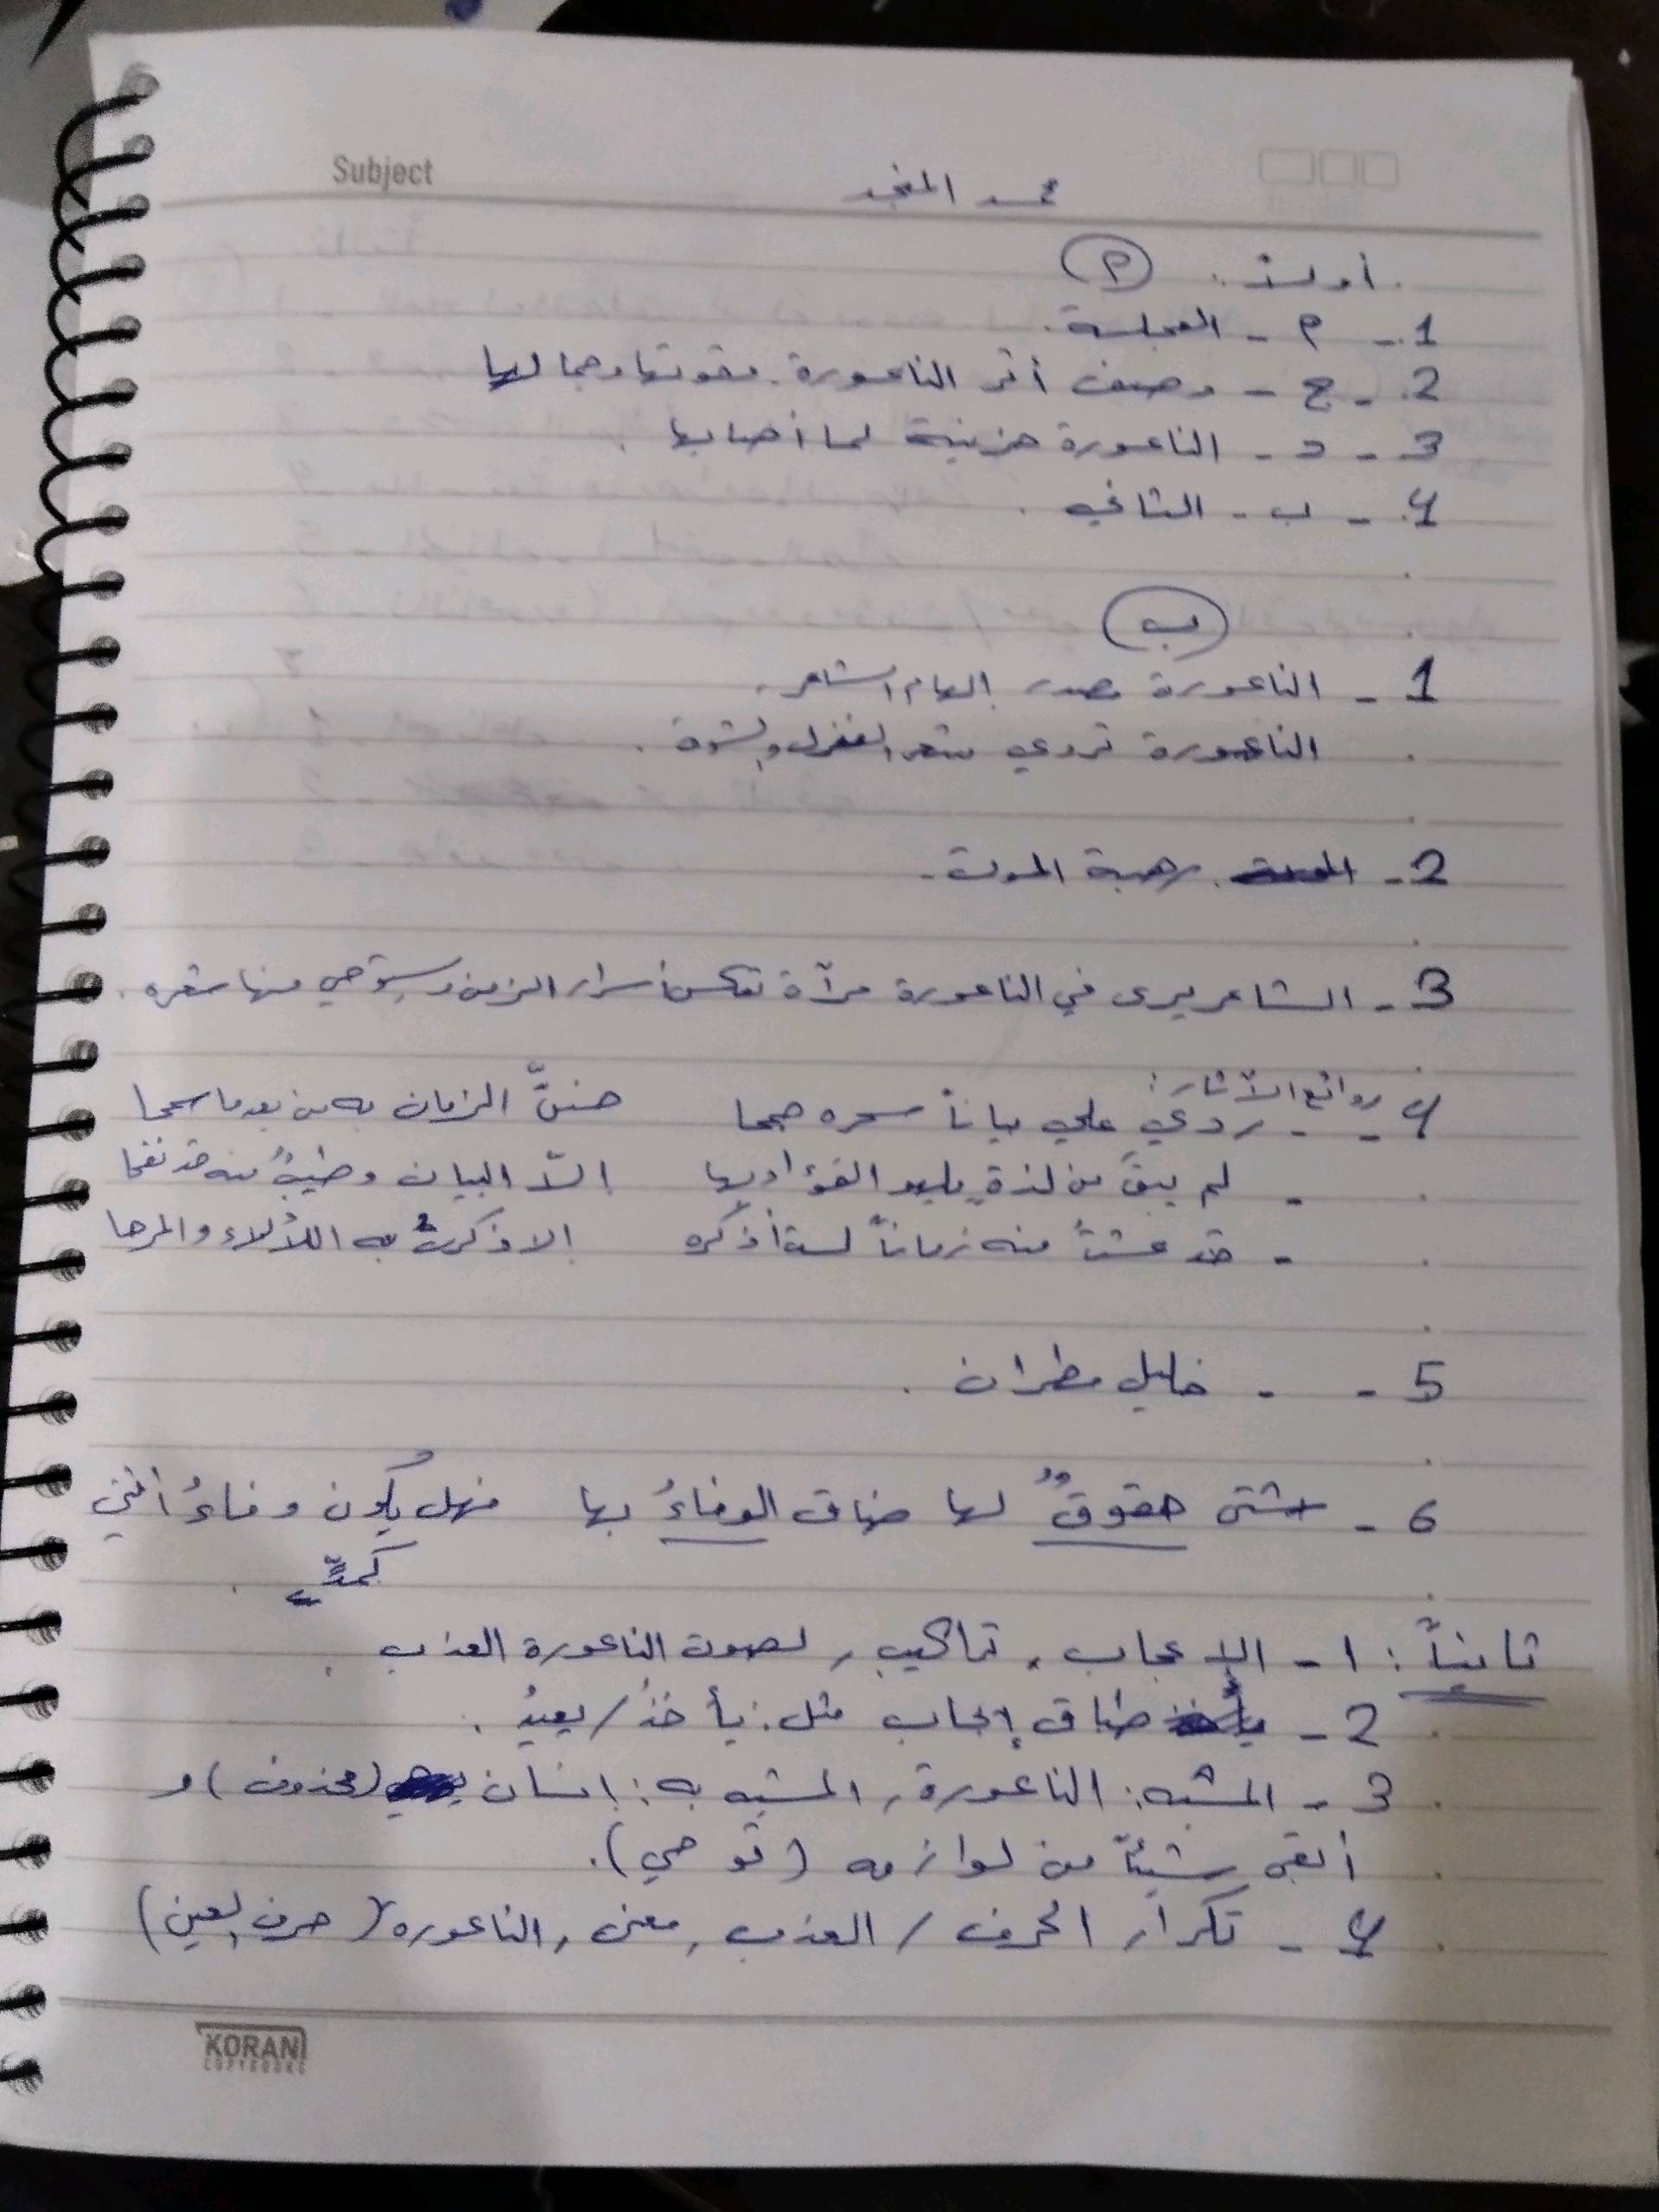 Subject
محمد المنجد
أولاً : (أ)
1 - أ - العجلة .
2 - ج - وصف أثر الناعورة وقوتها وجمالها
3 - د - الناعورة حزينة لما أصابها .
4 - ب - الثاني .
(ب)
1 - الناعورة مصدر إلهام الشاعر .
الناعورة تروي شعر الغزل و
2 - رهبة الموت .
3 - الشاعر يرى في الناعورة مرآة تعكس أسرار الزمن ويستوحي منها شعره .
روائع الآثار :
4 - - ردي علي بياناً سحره جمحا ضنّ الزمان به من بعد ما سمحا
- لم يبقَ من لذةٍ يلهو الفؤاد بها الّا البيان وطيبٌ منه قد نفحا
- قد عشتُ منه زماناً لست أذكره الا ذكرتُ به اللألاء والمرحا
5 - - خليل مطران .
6 - شتى حقوقٌ لها ضاق الوفاءُ بها فهل يكون وفاءُ أنني
كمدٌ .
ثانياً : 1 - الإعجاب , تراكيب , لصوت الناعورة العذب .
2 - طباق إيجاب مثل : يأخذُ / يعيدُ .
3 - المشبه : الناعورة , المشبه به : إنسان (محذوف) و
أبقى شيئاً من لوازمه (توحي) .
4 - تكرار الحرف / العذب , معنى , الناعوره (حرف العين)
KORAN
COPYBOOKS